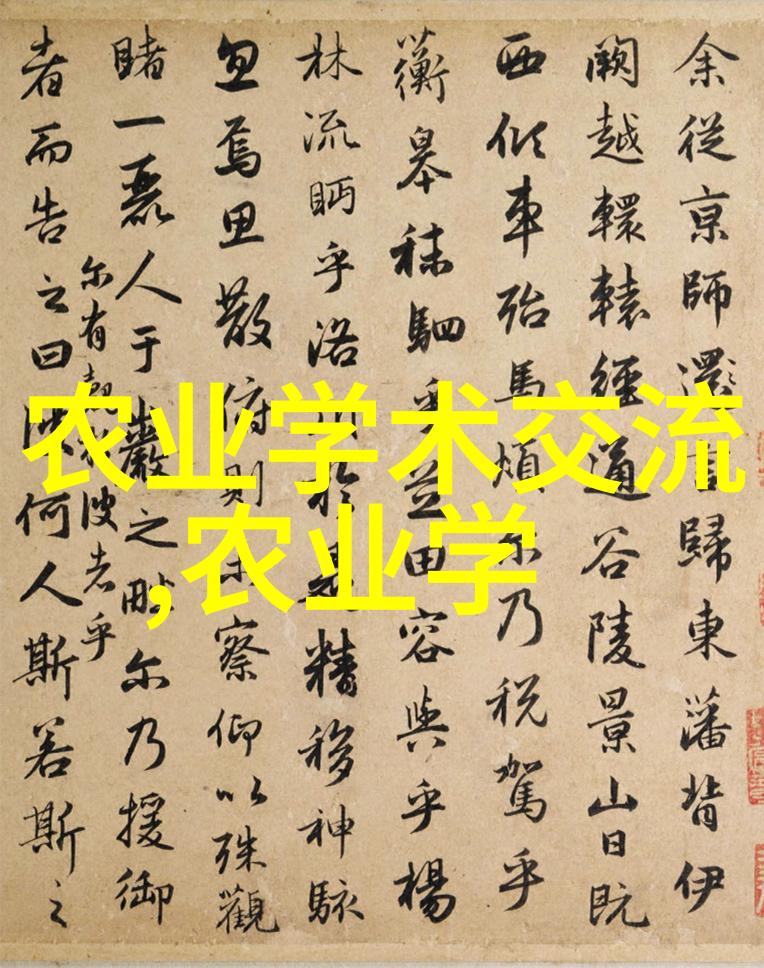 余從京師還言歸東藩背伊
闕越轘轅經通谷陵景山日既
西傾車殆馬煩尔乃稅駕乎
蘅皋秣駟乎芝田容與乎楊
林流眄乎洛川於是精移神駭
忽焉思散俯則未察仰以殊觀
睹一麗人于巖之畔尔乃援御
者而告之曰彼何人斯若斯之
尔有覿於彼者乎
农业学术交流
,农业学